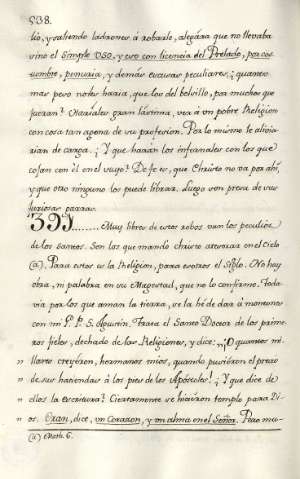 538.
lio, y saliendo ladrones à robarle, alegára que no llevaba
sino el Simple Uso, y eso con licencia del Prelado, por cos
tumbre, penuria, y demás excusas peculiares; ¿quanto
mas pero no les haria, que los del bolsillo, por muchos que
fueran? Harales gran lastima, ver à un pobre Religioso
con cosa tan agena de su profesion. Por lo mismo le alivia-
rian de carga. ¿Y que harian los infernales con los que
cojan con èl en el viage? De fe es, que Christo no va por ahì,
y que otro ninguno los puede librar. Luego son presa de sus
furiosas garras.
399........ Muy libres de estos robos van los peculios
de los Santos. Son los que manda Christo atesorar en el Cielo
(a). Para estos es la Religion, para esotros el Siglo. No hay
obra, ni palabra en su Magestad, que no lo confirme. Toda
via por los que aman la tierra, se la hè de dar à momentos
con mi P. P. S. Agustin. Trata el Santo Doctor de los prime-
ros fieles, dechado de las Religiones, y dice: ¡O quantos mi-
" llares creyéron, hermanos mios, quando pusiéron el precio
" de sus haciendas à los pies de los Apóstoles! ¿Y que dice de
" ellos la Escritura? Ciertamente se hiciéron templo para Di-
" os. Eran, dice, un Corazon, y un alma en el Señor. Pero mu-
(a) Math. 6.